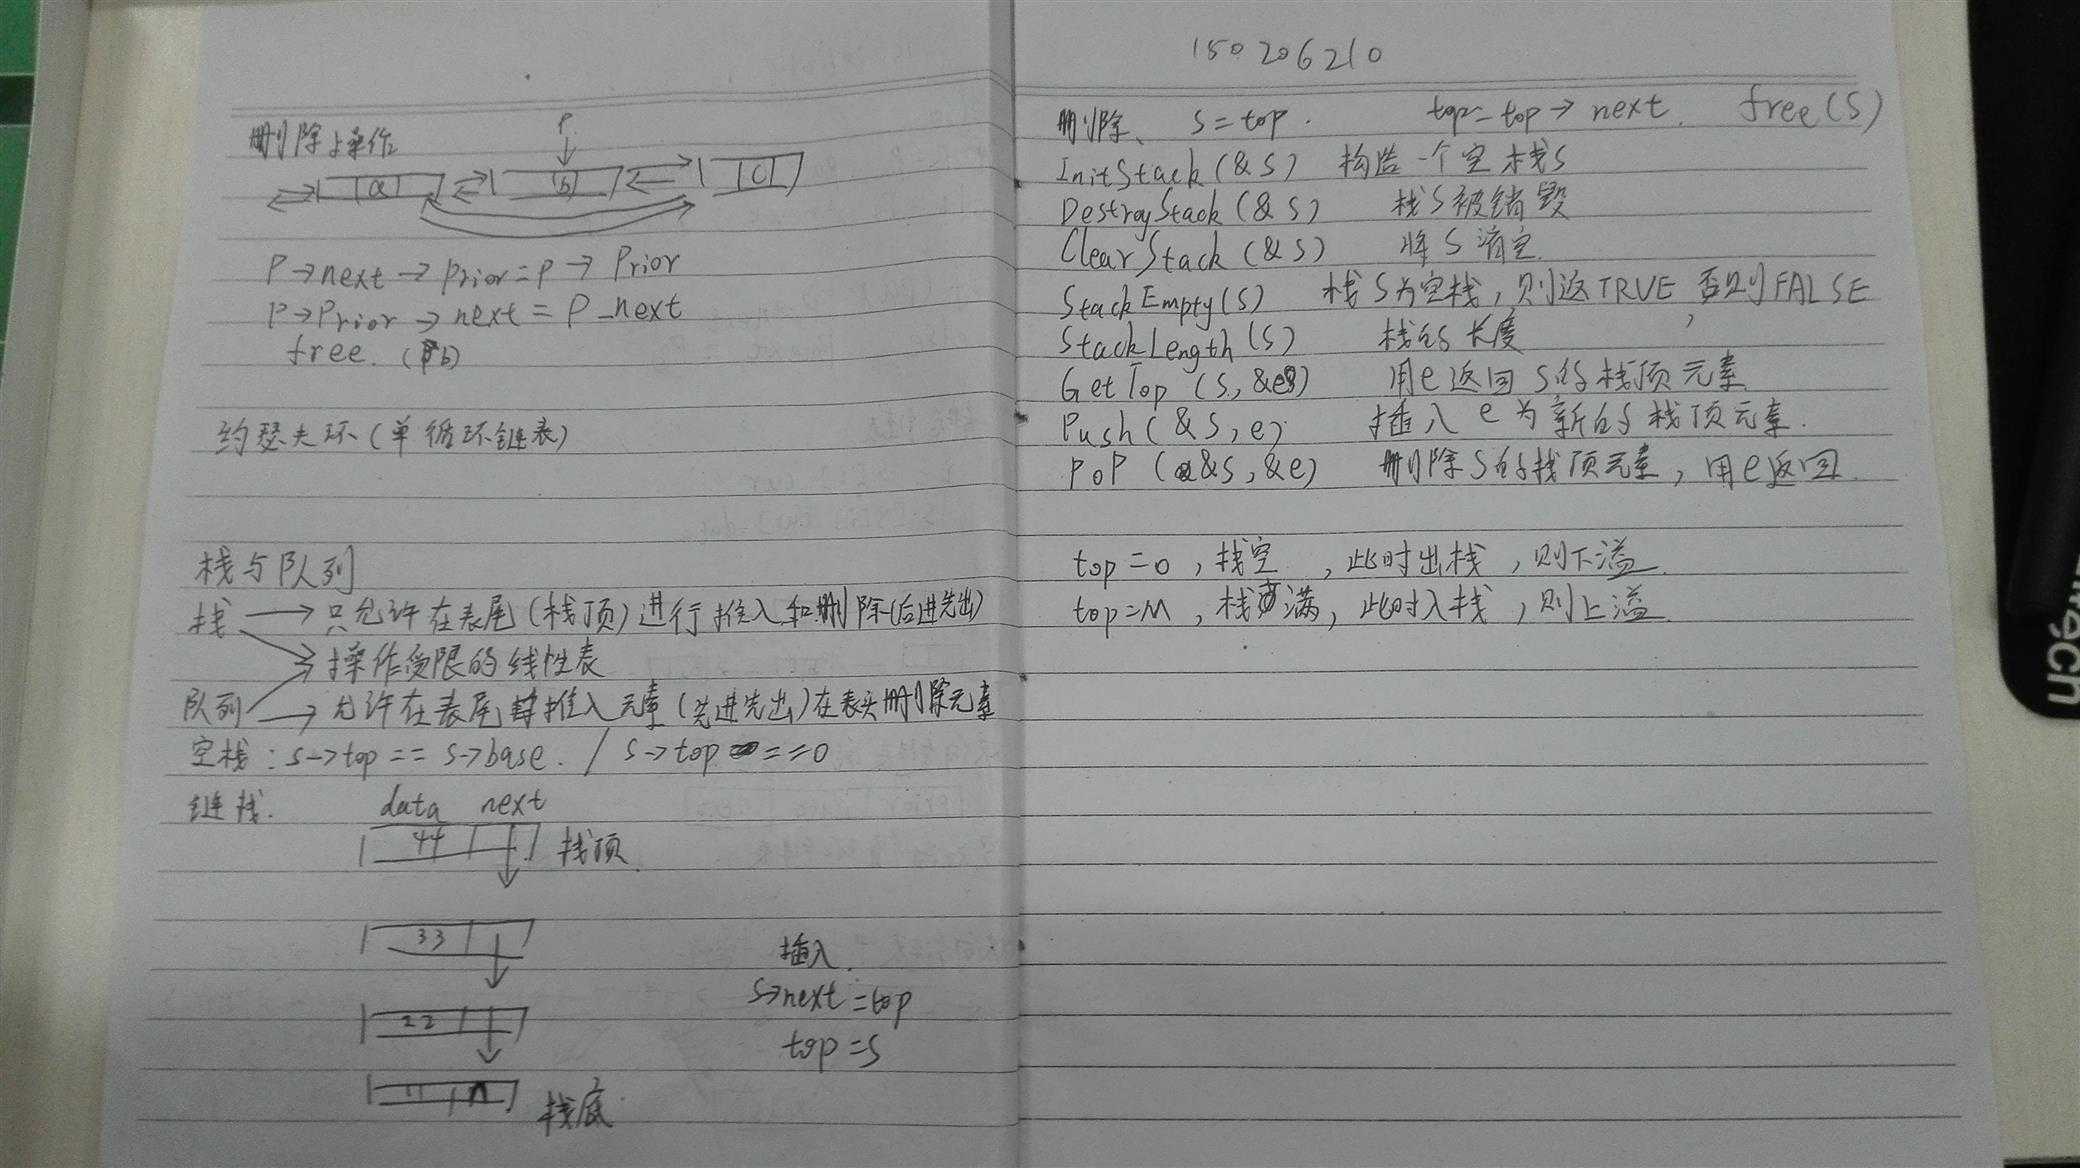 删除操作
P
a b c
P→next→prior=P→Prior
P→Prior→next=P_next
free.(b)
约瑟夫环(单循环链表)
栈与队列
栈→只允许在表尾(栈顶)进行插入和删除(后进先出)
操作受限的线性表
队列→允许在表尾插入元素(先进先出)在表头删除元素
空栈:S→top==S→base. / S→top==0
链栈. data next
44 栈顶
33
22
11 ∧ 栈底
插入.
S→next=top
top=S
150206210
删除、 S=top. top=top→next. free(S)
InitStack(&S) 构造一个空栈S
DestroyStack(&S) 栈S被销毁
ClearStack(&S) 将S清空.
StackEmpty(S) 栈S为空栈,则返TRUE,否则FALSE
StackLength(S) 栈的长度
GetTop(S,&e) 用e返回S的栈顶元素.
Push(&S,e). 插入e为新的栈顶元素.
PoP(&S,&e) 删除S的栈顶元素,用e返回.
top=0,栈空,此时出栈,则下溢.
top=M,栈满,此时入栈,则上溢.